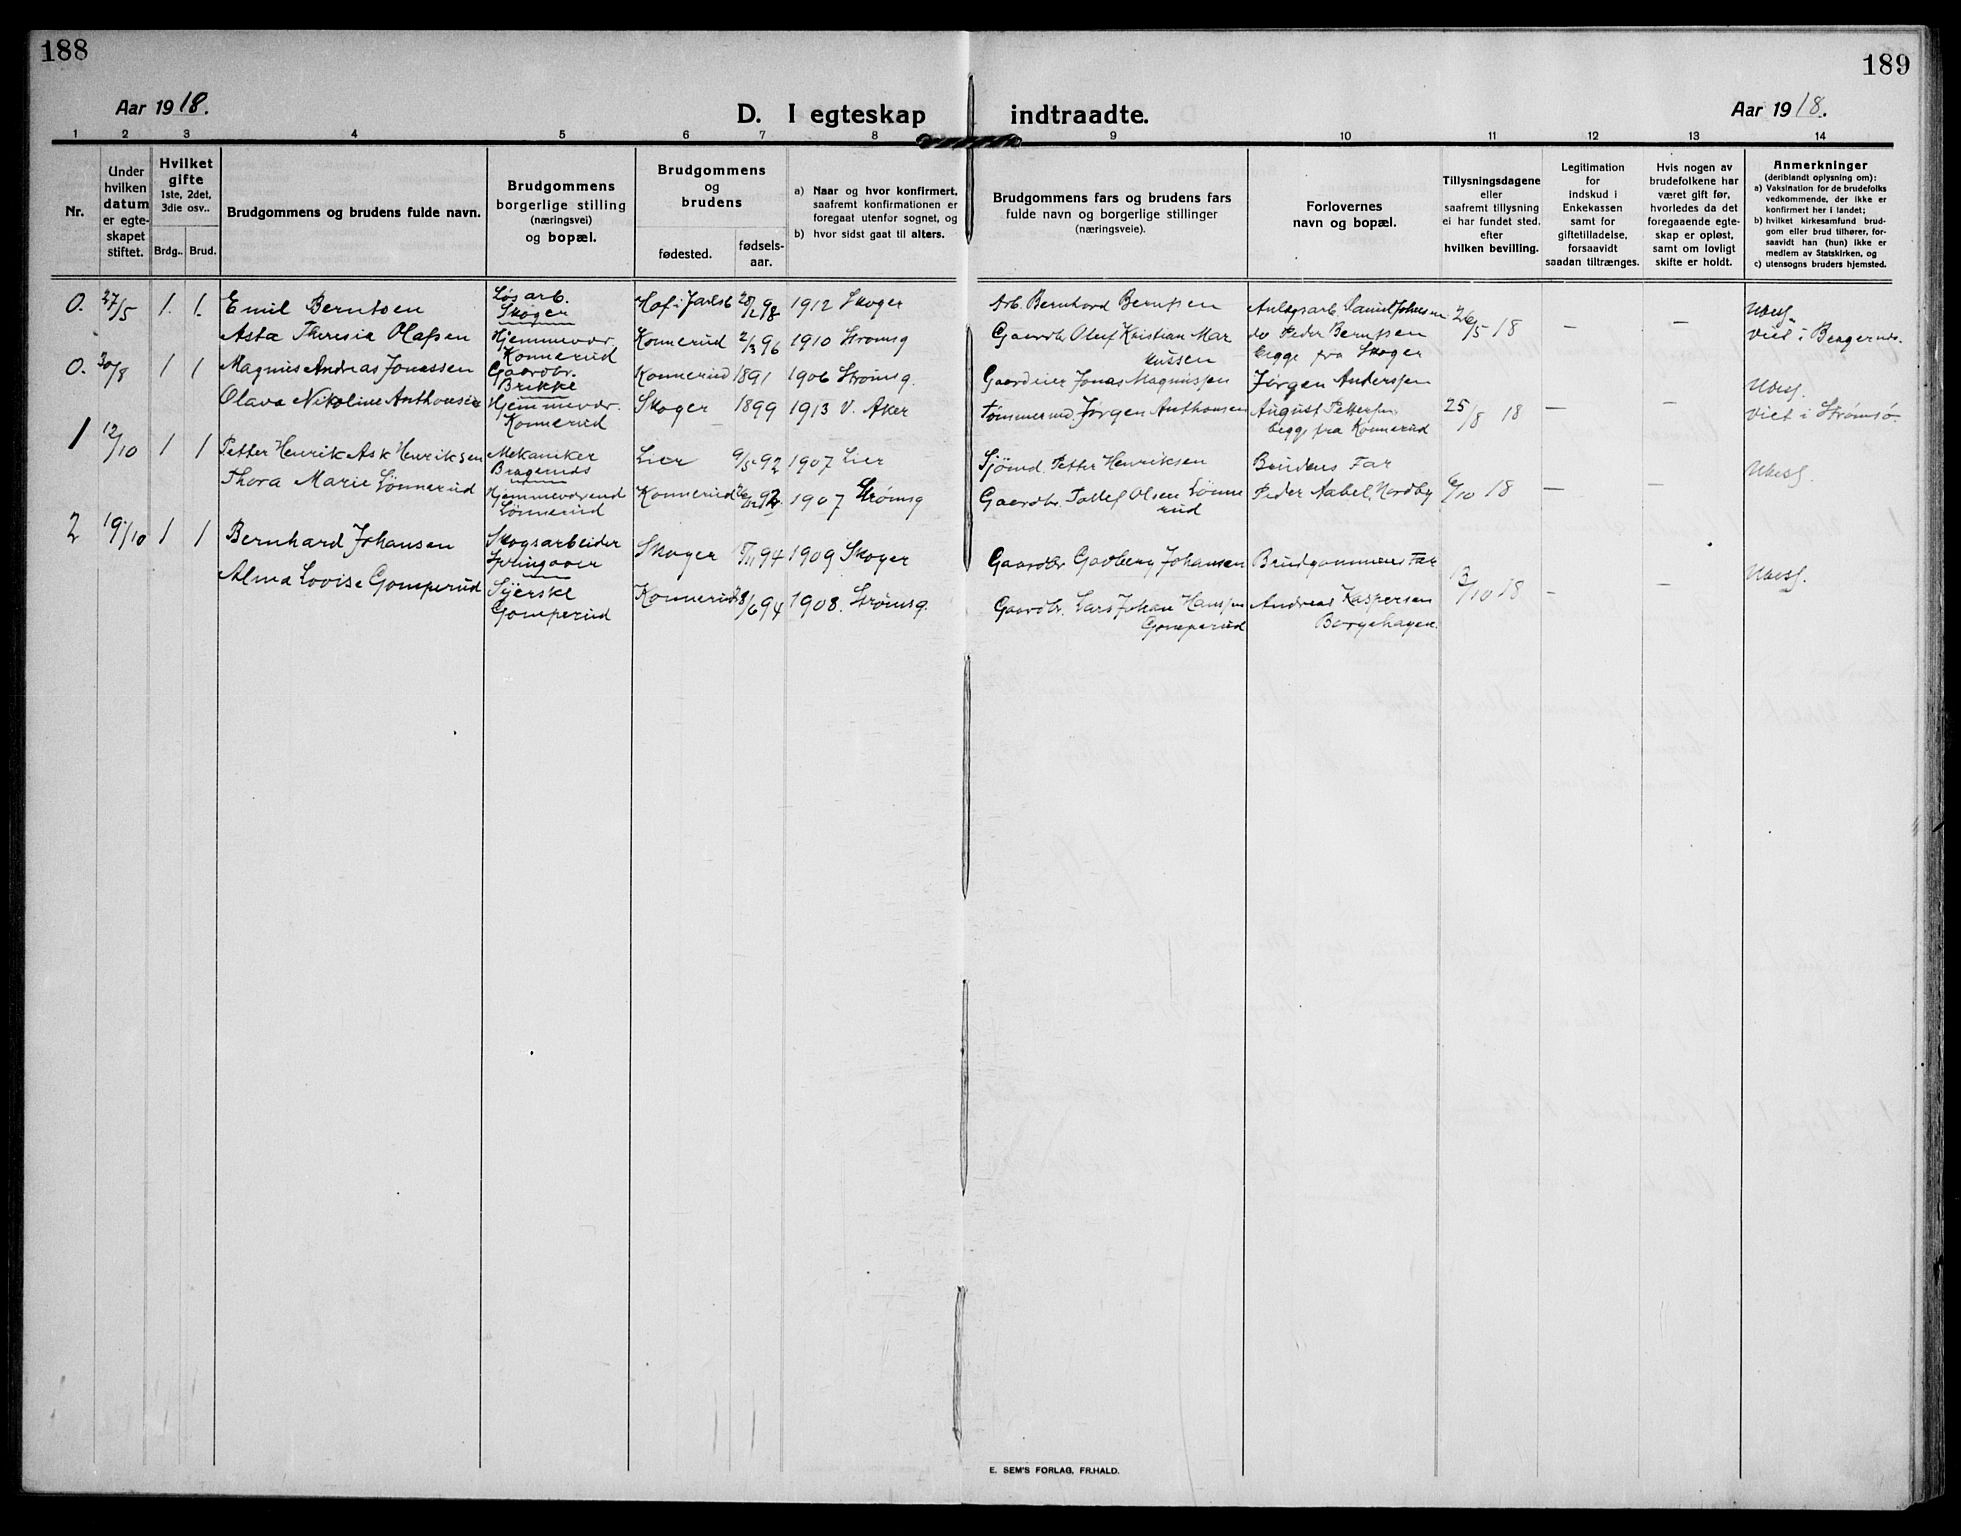 188
189
Aar 1918.
D. I egteskap indtraadte.
Aar 1918.
1 2 3 4 5 6 7 8 9 10 11 12 13 14
Nr.
Under
hvilken
datum
er egte-
skapet
stiftet.
Hvilket
gifte
1ste, 2det,
3die osv..
Brdg..
Brud.
Brudgommens og brudens fulde navn.
Brudgommens
borgerlige stilling
(næringsvei)
og bopæl.
Brudgommens
og
brudens
fødested.
fødsels-
aar.
a) Naar og hvor konfirmert,
saafremt konfirmationen er
foregaat utenfor sognet, og
b) hvor sidst gaat til alters.
Brudgommens fars og brudens fars
fulde navn og borgerlige stillinger
(næringsveie).
Forlovernes
navn og bopæl.
Tillysningsdagene
eller
saafremt tillysning
ei har fundet sted.
efter
hvilken bevilling.
Legitimation
for
indskud i
Enkekassen
samt for
giftetilladelse,
forsaavidt
saadan tiltrænges.
Hvis nogen av
brudefolkene har
været gift før,
hvorledes da det
foregaaende egte-
skap er opløst,
samt om lovligt
skifte er holdt.
Anmerkninger
(deriblandt oplysning om):
a) Vaksination for de brudefolks
vedkommende, der ikke er
konfirmert her i landet;
b) hvilket kirkesamfund brud-
gom eller brud tilhører, for-
saavidt han (hun) ikke er
medlem av Statskirken, og
c) utensogns bruders hjemsted.
0. 27/5 1. 1. Emil Berntsen
Løsarb.
Skoger
Hof i Jarlsb 20/2 98 1912 Skoger
Arb. Bernhard Berntsen
Anlægsarb.
26/5 18 — —
Ubesl.
Asta Theresia Olafsen
Hjemmevær.
Konnerud
Konnerud 2/3 96 1910 Strømsg
Gaardbr Oluf Kristian Mar
kussen
do Peder Berntsen
begge fra Skoger
viet i Bragernes.
0. 30/8 1 1 Magnus Andreas Jonassen
Gaardbr.
Brikke
Konnerud 1891 1906 Strømsg.
Gaardeier Jonas Magnussen
Jørgen Anderssen
25/8 18 — —
Ubesl.
Olava Nikoline Anthonsen
Hjemmevær.
Konnerud
Skoger 1899 1913 V. Aker
Tømmermd. Jørgen Anthonsen
August Pettersen
begge fra Konnerud
viet i Strømsø.
1 12/10 1 1 Petter Henrik Ask Henriksen
Mekaniker
Bragernes
Lier 9/5 92 1907 Lier
Sjømd. Petter Henriksen
Brudens Far
6/10 18 — —
Ubesl.
Thora Marie Lønnerud
Hjemmeværend
Lønnerud
Konnerud 92 1907 Strømsg
Gaardbr. Tollef Olsen Lønne
rud
Peder Aabel, Nordby
2 19/10 1 1 Bernhard Johansen
Skogsarbeider
Skoger 5/11 94 1909 Skoger
Gaardbr Gudberg Johansen
Brudgommens Far
13/10 18 — —
Ubesl.
Alma Lovise Gomperud
Syerske
Gomperud
Konnerud 23/6 94 1908. Strømsg.
Gaardbr. Lars Johan Hanssen
Gomperud
Andreas Kaspersen
Borgehagen.
E. SEM'S FORLAG, FR.HALD.